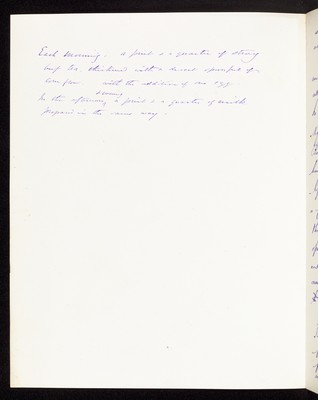 Each morning. a pint & a quarter of strong
beef tea thickened with a desert spoonful of
with the addition of one egg.
In the afternoon a pint & a quarter of milk
prepared in the same way.